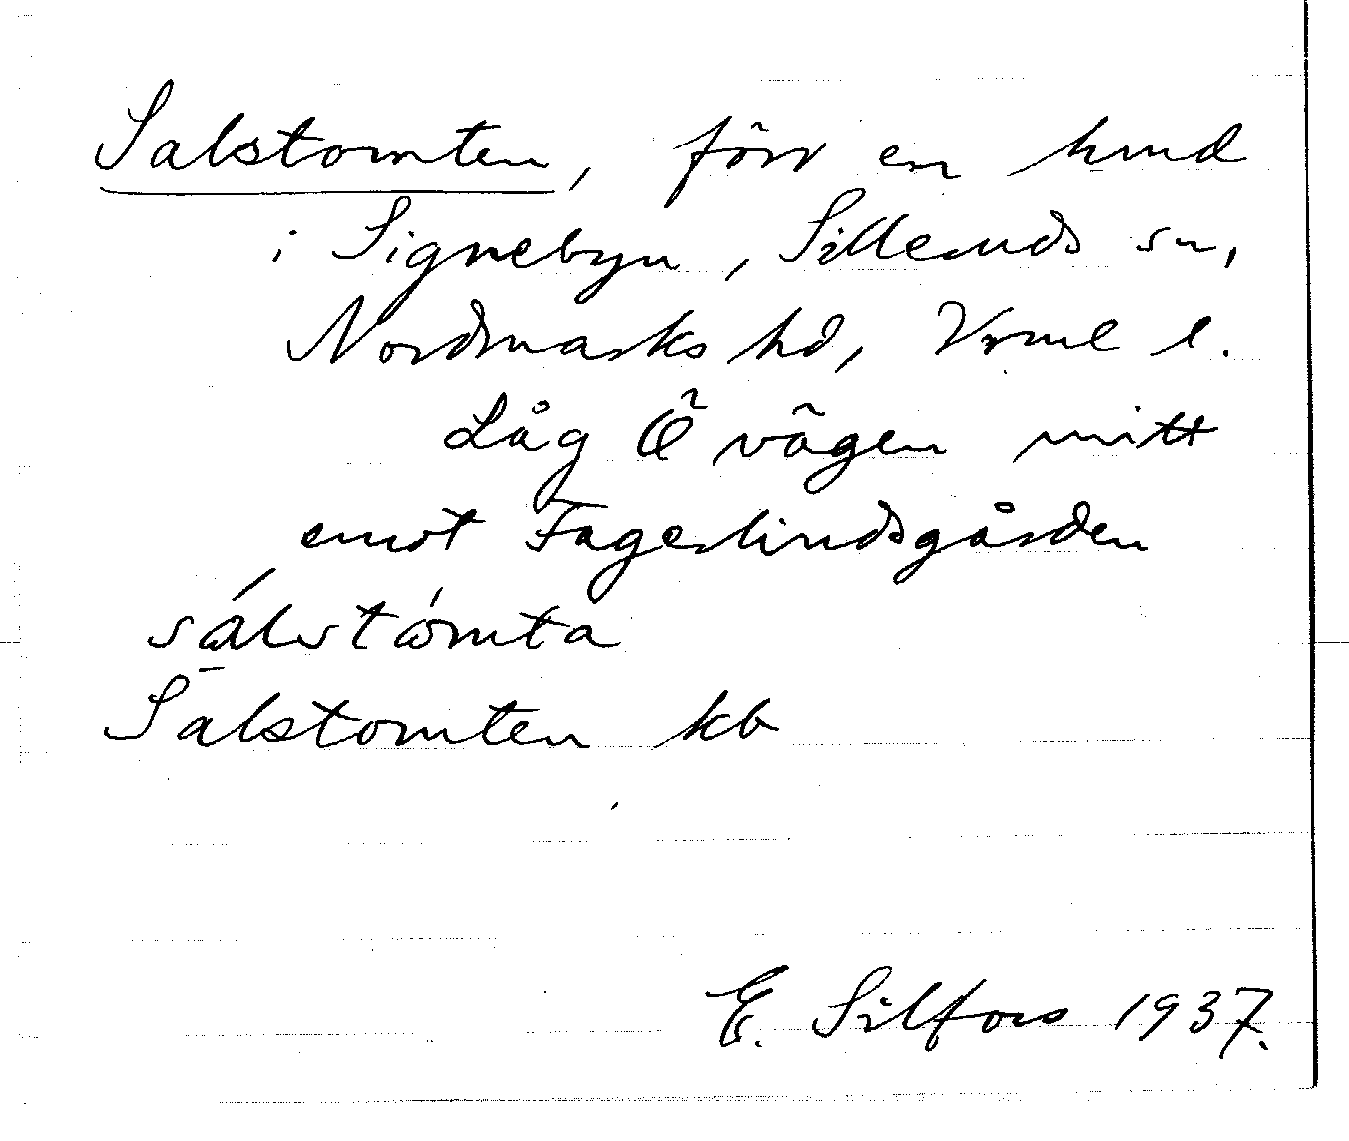 Salstomten, förr en hmd
i Signebyn, Silleruds sn,
Nordmarks hd, Vrml l.
Låg Ö vägen mitt
emot Fagerlindsgården
sálstómta
Salstomten kb
E. Silfors 1937.